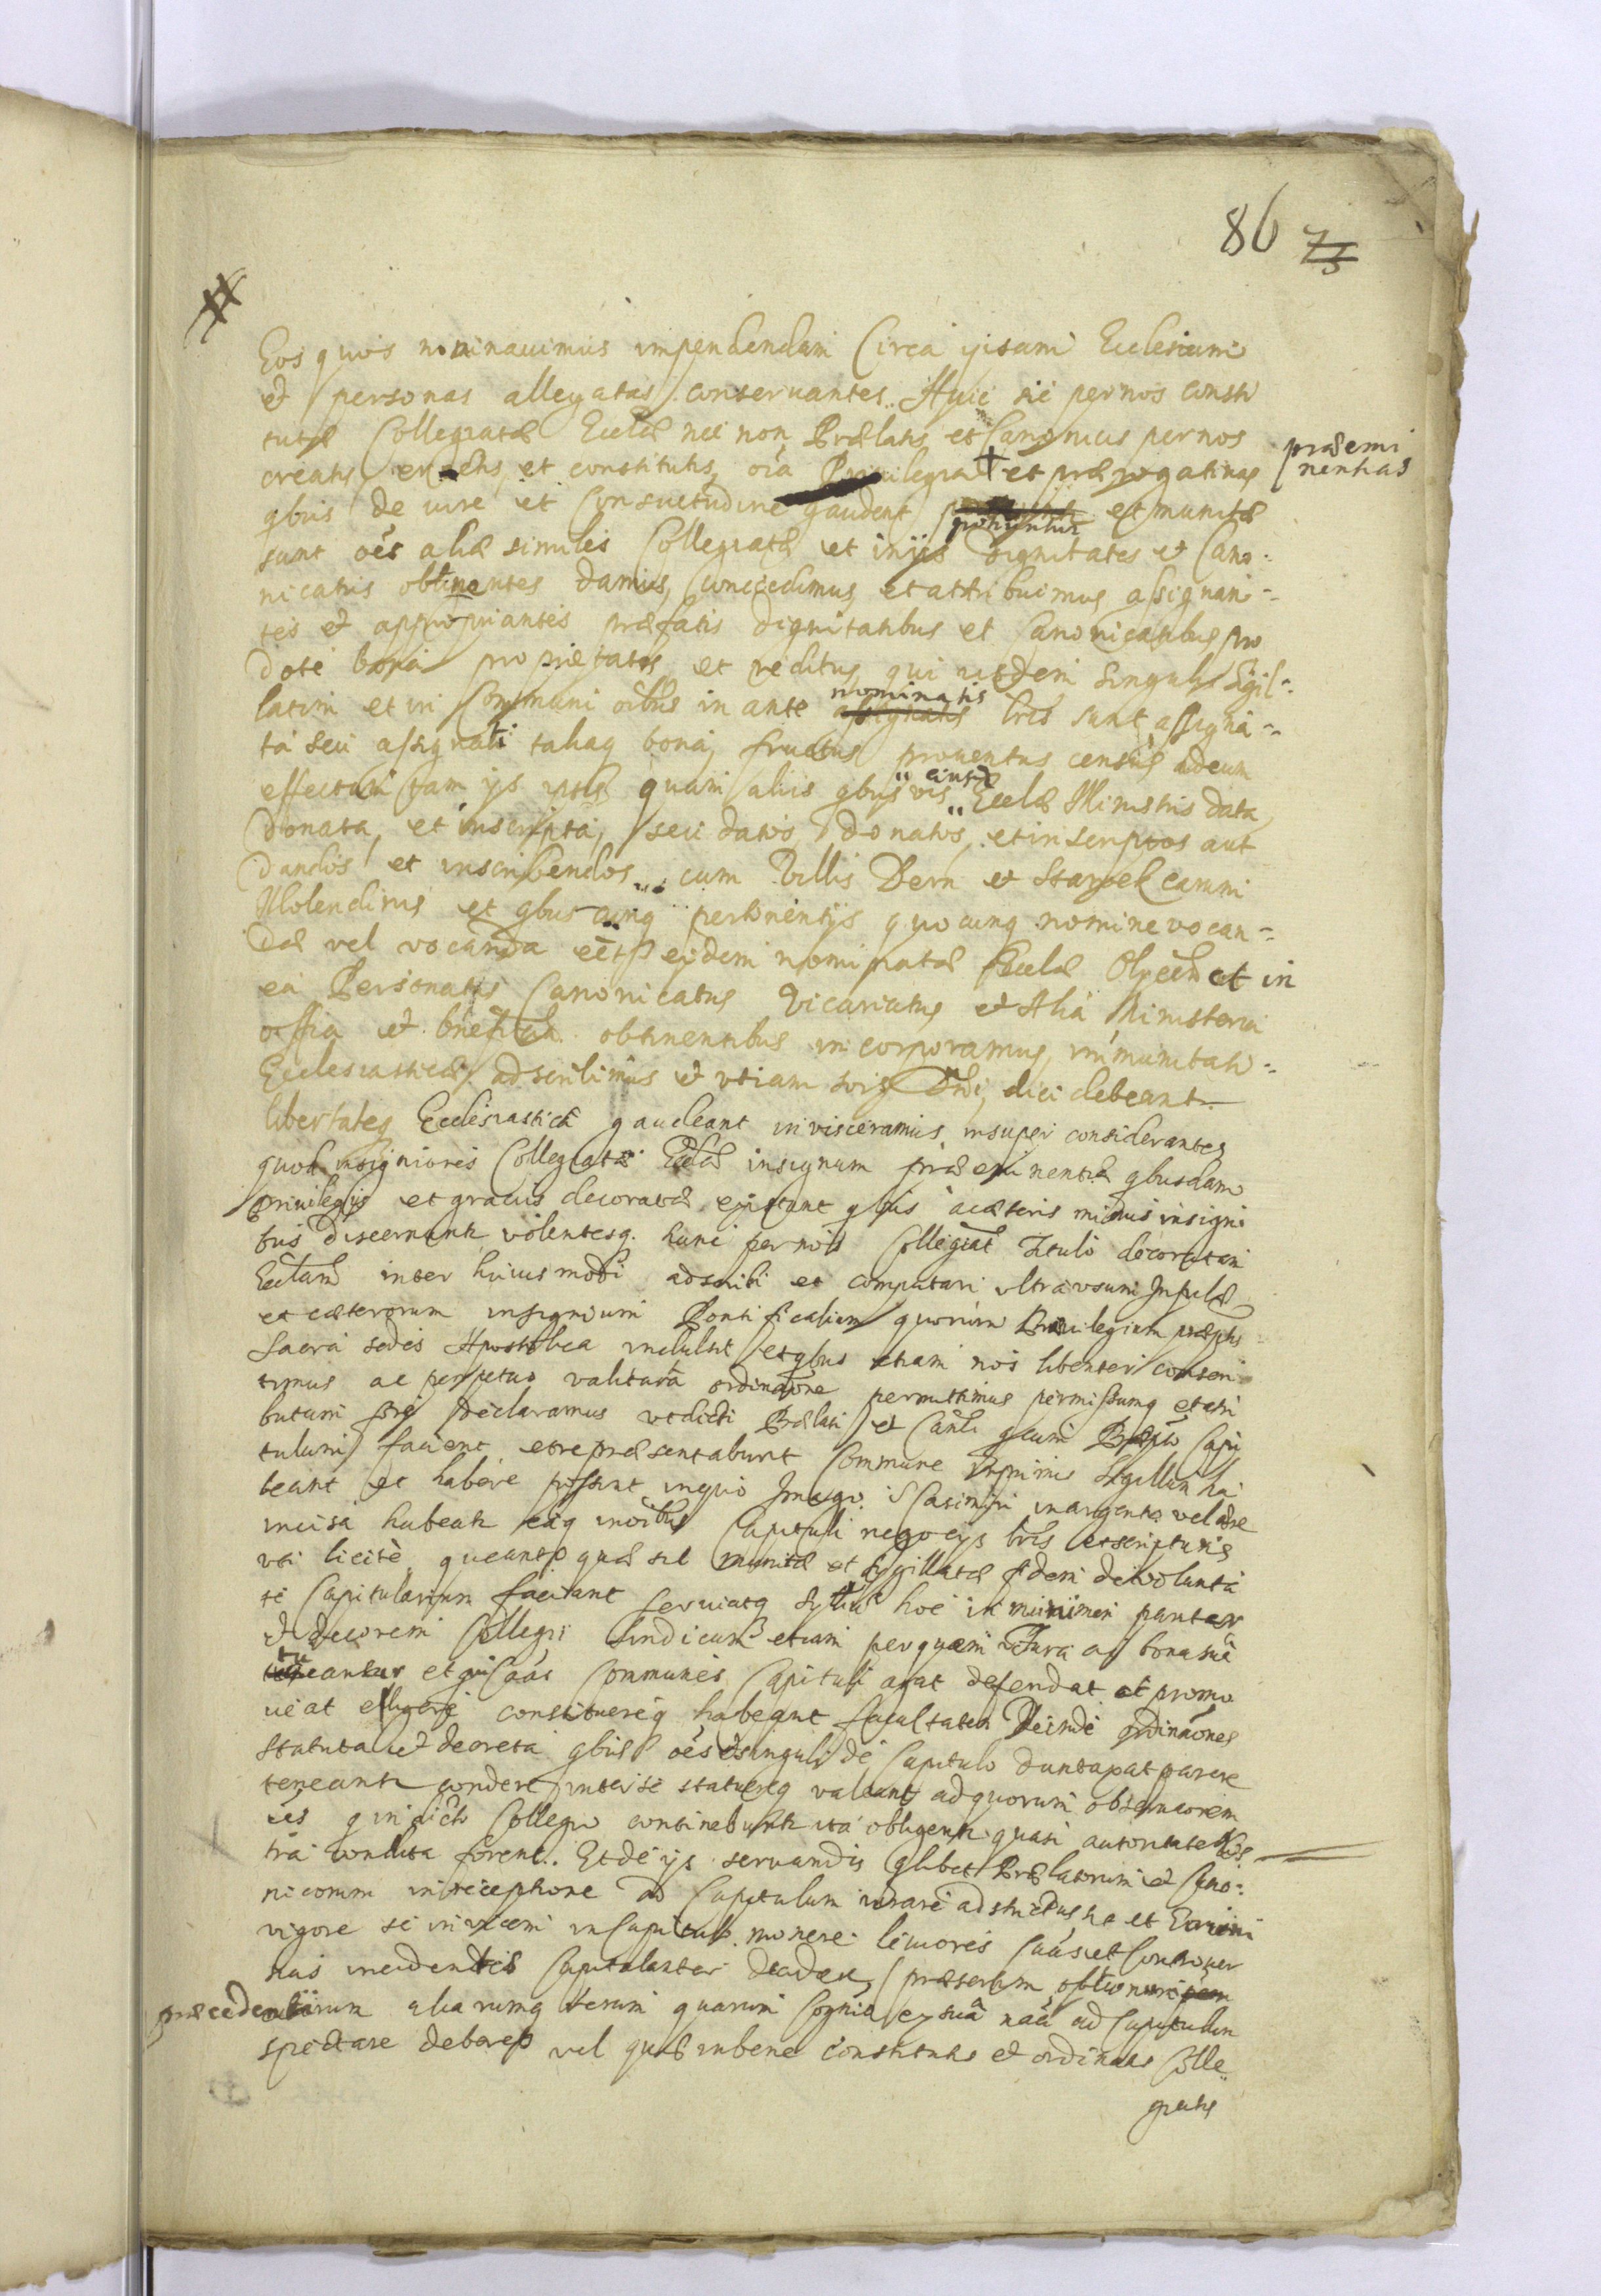 86 73
Eos quos nominauimus impendendam Circa ipsam Ecclesiam
et personas allegatas conseruantes. Huic sic per nos consti
tutæ Collegiatæ Eccl̃æ nec non Prælatis et Canonicis per nos
creatis erectis et constitutis oĩa Priuilegia † et prærogatiuas
præemi
nentias
qbus de iure et Consuetudine gaudent potiuntur et munitæ
sunt oẽs aliæ similes Collegiatæ et in ijs dignitates et Cano:
nicatus obtinentes damus, concedimus et attribuimus assignan:
tes et appropriantes præfatis dignitatibus et Canonicatibus pro
dote bona proprietates et reditus qui eisdem singulis sigil:
latim et in Communi oĩbus in ante nominatis lr̃is sunt assigna:
ta seu assignati taliaq bona, fructus prouentus census ad eum
effectum tam ijs ip̃is quam aliis qbusvis eiusd Eccl̃æ Ministris data
donata, et inscripta, seu datos donatos, et inscriptos aut
dandos et inscribendos cum Villis Bern et Starzek earum
Molendinis et qbuscunq pertinentijs quocunq nomine vocan:
dæ vel vocanda eidem nominatæ Eccl̃æ et in
ea Personatus Canonicatus Vicariatus et Alia Ministeria
offia et obtinentibus incorporamus, immunitati:
Ecclesiasticæ adscribimus et vtiam dici debeant
libertates Ecclesiasticæ gaudeant inuisceramus insuper considerantes
quod insigniores Collegiatæ Eccl̃æ insignum præeminentia qbusdam
priuilegijs et gratiis decoratæ existant qbus a cæteris minus insigni
bus discernantr volentesq. hanc per nos Collegiat Titulo decoratam
Eccl̃am inter huiusmodi adscribi et computari vltra vsum Infulæ
et cæterorum insignium Pontificalium quorum Priuilegium præptis
Sacra sedes Apostolica indulsit et qbus etiam nos libenter consen
timus ac perpetuo valitura ordinaõne permittimus permissumq et attri
butum fore declaramus vt dicti Prælati et Canci qcum Præpto Capi
tulum facient et repræsentabunt Commune Sigillum ha
beant et habere possint in quo Imago S Casimiri in argento vel ære
incisa habeatr eaq in oĩbus Capituli negocijs lr̃is et scripturis
vti licitè queant quæ sic munitæ et sigillatæ fidem de volunta
te Capitularium faciant seruiatq Sigillũ hoc in munimen pariter
et decorem Collegii Sindicum etiam per quem Iura ac bona sua
tueantur et qui cãas Communes Capituli agat defendat et promo
ueat eligere constituereq habeant facultatem Deinde ordinaõnes
statuta et decreta qbus oẽs et singuli de Capitulo duntaxat parere
teneantr condere inter se statuereq valeant ad quorum obseruãorem
ces q in dicto Collegio continebuntr ita obligentr quasi autoritate Nos
tra condita forent. Et de ijs seruandis qlibet Prælatorum et Cano:
nicorum in receptione ad Capitulum iurare adstrictus sit et Eorum
vigore se inuicem in Capitulo monere leuiores cãas et Controuer
sias incidentes Capitulariter decidere, præsertim
præcedentiarum aliarumq rerum quarum Cognitio ex sua nãa ad Capitulum
spectare deberet vel quæ in bene constitutis et ordinatis Colle
giatis